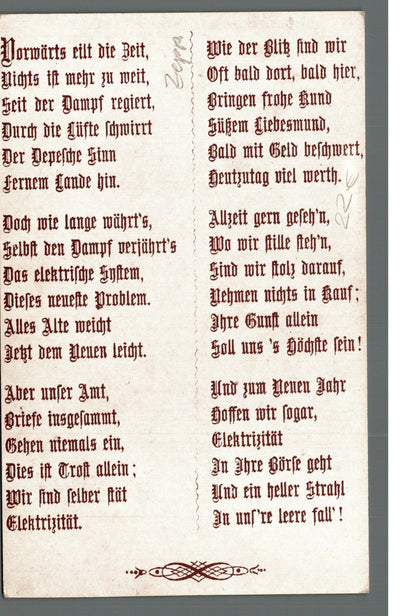 Vorwärts eilt die Zeit,
Nichts ist mehr zu weit,
Seit der Dampf regiert,
Durch die Lüfte schwirrt
Der Depesche Sinn
Fernem Lande hin.
Doch wie lange währt's,
Selbst den Dampf verjährt's
Das elektrische System,
Dieses neueste Problem.
Alles Alte weicht
Jetzt dem Neuen leicht.
Aber unser Amt,
Briefe insgesammt,
Gehen niemals ein,
Dies ist Trost allein;
Wir sind selber stät
Elektrizität.
Wie der Blitz sind wir
Oft bald dort, bald hier,
Bringen frohe Kund
Süßem Liebesmund,
Bald mit Geld beschwert,
Heutzutag viel werth.
Allzeit gern geseh'n,
Wo wir stille steh'n,
Sind wir stolz darauf,
Nehmen nichts in Kauf;
Ihre Gunst allein
Soll uns 's Höchste sein!
Und zum Neuen Jahr
Hoffen wir sogar,
Elektrizität
In Ihre Börse geht
Und ein heller Strahl
In uns're leere fall'!
22€